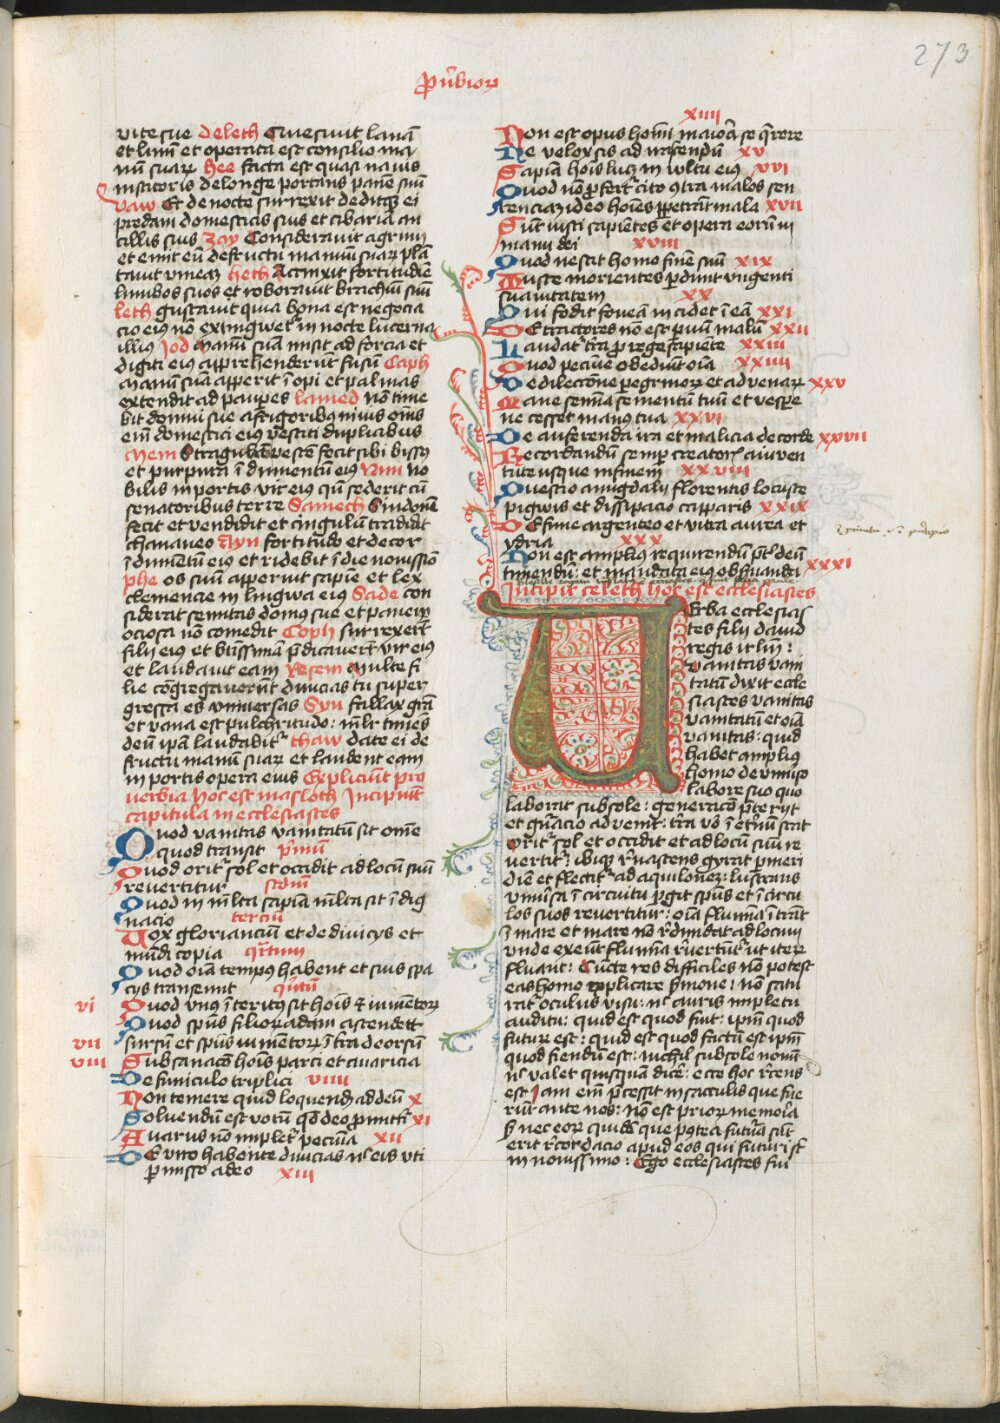 273
Prúbior
vite sue deleth Quesiuit lanā
et linū et operata est consilio ma
nuū suarꝝ hee facta est quasi nauis
institoris de longe portans panē suū
vaw Et de nocte surrexit deditqꝫ ei
predam domesticis suis et cibaria an
cillis suis zay Considerauit agrum
et emit eū de fructu manuum suarꝝ plā
tauit vineaꝫ heth Accinxit fortitudīe
lumbos suos et roborauit brachiū suū
leth gustauit quia bona est negocia
cio eiꝰ nō extingwet̄ in nocte lucerna
illiꝰ Jod Manū suā misit ad forcia et
digiti eiꝰ apprehenderūt fusū Caph
Manū suā apperit īopi et palmas
extendit ad paupes lamed nō time
bit domui sue a frigoribꝰ niuis om̄s
em̄ domestici eiꝰ vestiti duplicibus
Mem Stragulatā vestē fecit sibi bissꝰ
et purpura īdumentū eiꝰ Nun no
bilis in portis vir eiꝰ qn̄ sederit cū
senatoribus terre Samech Sindonē
fecit et vendidit et cingulū tradidit
chananeo Ayn fortitudo et decor
īdumētum eiꝰ et ridebit ī die nouissiō
phe os suū apperuit sapiē et lex
clemencie in lingwa eiꝰ Sade con
siderat semitas domus sue et panem
ociosa nō comedit Coph surrexerūt
filii eiꝰ et btissimā p̄dicauerūt vir eiꝰ
et laudauit eam Resem Multe fi
lie cōgregauerūt diuicias tu super
gressa es vniuersas Syn fallax gr̄a
et vana est pulchritudo: mlr̄ timēs
deū ipā laudabit̄ thaw date ei de
fructu manuū suarꝝ et laudent eam
in portis opera eius Expliciūt pro
verbia hoc est masloth Incipiūt
capitula in ecclesiastes
Quod vanitas vanitatū sit om̄e
quod transit pⁱmū
Quod orit̄ sol et occidit ad locū suū
reuertitur scdm
Quod in ml̄ta sapīa ml̄ta sit īdig
nacio terciū
Uox glorianciū et de diuicijs et
mūdi copia qr̄tum
Quod oīa tempꝰ habent et suis spa
cijs transeunt qⁱntū
vi Quod vnꝰ īteritꝰ sit hoīs ⁊ iumētorꝝ
Quod spūs filiorꝝ adam ascendett
vii sursū et spūs iumētorꝝ īfra deorsū
viii Subsanacōe hoīs parci et auaricia
De funiculo triplici viiii
Non temere quid loquendꝫ ad deū x
Soluendū est votū qd̄ deo pmittit̄ xi
Auarus nō implet̄ pecūia xii
De viro habente diuicias nc̄ eis vti
pmisso a deo xiii
xiiii
Non est opus homī maiora se qrere
Ne velox sis ad irascendū xv
Sapīa hoīs lucꝫ in vultu eiꝰ xvi
Quod nō pfert̄ cito ꝯtra malos sen
tencia ideo hoīes ppetrāt mala xvii
Sūt iusti sapiētes et opera eorū in
manu dei xviii
Quod nesciat homo finē suū xix
Muste morientes pdunt vngenti
suauitatem xx
Qui fodit foueā incidet ī eā xxi
Detractores nō est puū malū xxii
Laudat̄ tr̄a p rege sapiēte xxiii
Quod pecūie obediūt oīa xxiiii
De dilectōne pegrinorꝝ et aduenarꝝ xxv
Mane semīa sementū tuū et vespe
ne cesset manꝰ tua xxvi
De auferenda ira et malicia de corde xxvii
Recordandū semp creatorꝭ a iuuen
tute usque in finem xxviii
Questio amigdali florentis locuste
pigwis et dissipacio capparis xxix
De fune argenteo et vitta aurea et
ydria xxx
Non est ampliꝰ requirendū pt̄ deū
timendū: et mandata eiꝰ obseruanda xxxi
Incipit celeth hoc est ecclesiastes
Uerba ecclesias
tes filii dauid
regis irlm̄:
vanitas vani
tatū dixit eccle
siastes vanitas
vanitatū et oīa
vanitas: quid
habet ampliꝰ
homo de vniuso
labore suo quo
laborat sub sole: generacō p̄terijt
et gn̄acio aduenit: tr̄a vō ī et̄nū stat
Orit̄ sol et occidit et ad locū suū re
uertit̄: ibiqꝫ r̄nascens gyrat p meri
diē et flectit̄ ad aquilonēꝫ: lustrans
vniūsa ī circuitu pgit spūs et ī circu
los suos reuertitur: oīa flumīa ītrāt
ī mare et mare nō r̄dundat ad locum
vnde exeūt flumīa r̄uertūt̄ ut iterꝝ
fluant: Cūcte res difficiles nō potest
eas homo explicare smone: nō saciā
rat̄ oculus visu: nc̄ auris impletu
auditu: quid est quod fuit: ipm̄ quod
futurū est: quid est quod factū est ipm̄
quod fiendū est: nichil sub sole nouū
nc̄ valet quisquā dicē: ecce hoc r̄cens
est Jam em̄ pcessit in seculis que fue
rūt ante nos: nō est priorꝝ memoīa
sꝫ nec eorꝝ quidē que postea futura sūt
erit r̄cordacio apud eos qui futuri sꝭ
in nouissimo: Ego ecclesiastes fui